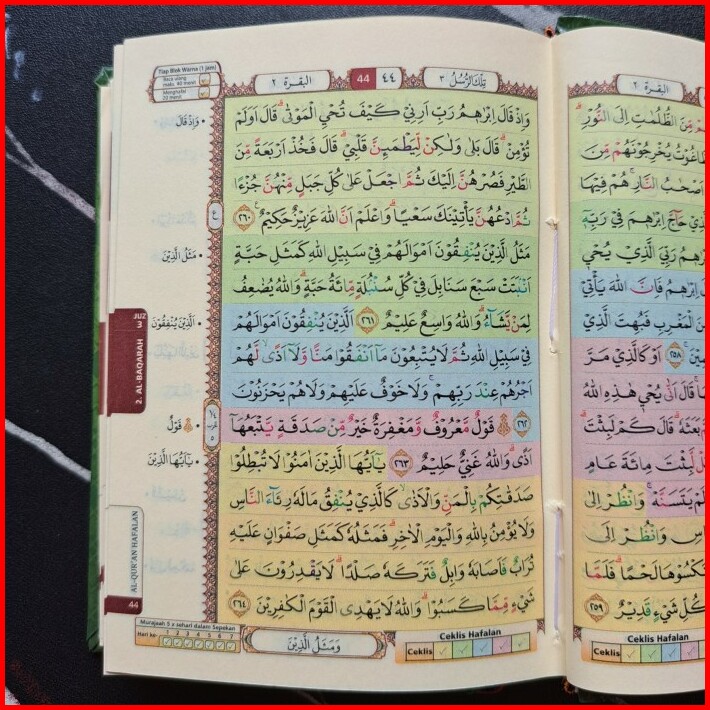 Tiap Blok Warna (1 jam)
Baca ulang
maks 40 menit
Menghafal
20 menit
البقرة ٢
44
٤٤
تلك الرسل ٣
وَاِذْ قَالَ اِبْرٰهٖمُ رَبِّ اَرِنِيْ كَيْفَ تُحْيِ الْمَوْتٰىۗ قَالَ اَوَلَمْ
تُؤْمِنْۗ قَالَ بَلٰى وَلٰكِنْ لِّيَطْمَىِٕنَّ قَلْبِيْۗ قَالَ فَخُذْ اَرْبَعَةً مِّنَ
الطَّيْرِ فَصُرْهُنَّ اِلَيْكَ ثُمَّ اجْعَلْ عَلٰى كُلِّ جَبَلٍ مِّنْهُنَّ جُزْءًا
ثُمَّ ادْعُهُنَّ يَأْتِيْنَكَ سَعْيًاۗ وَاعْلَمْ اَنَّ اللّٰهَ عَزِيْزٌ حَكِيْمٌ ࣖ ٢٦٠
مَثَلُ الَّذِيْنَ يُنْفِقُوْنَ اَمْوَالَهُمْ فِيْ سَبِيْلِ اللّٰهِ كَمَثَلِ حَبَّةٍ
اَنْۢبَتَتْ سَبْعَ سَنَابِلَ فِيْ كُلِّ سُنْۢبُلَةٍ مِّائَةُ حَبَّةٍۗ وَاللّٰهُ يُضٰعِفُ
لِمَنْ يَّشَاۤءُۗ وَاللّٰهُ وَاسِعٌ عَلِيْمٌ ٢٦١ اَلَّذِيْنَ يُنْفِقُوْنَ اَمْوَالَهُمْ
فِيْ سَبِيْلِ اللّٰهِ ثُمَّ لَا يُتْبِعُوْنَ مَآ اَنْفَقُوْا مَنًّا وَّلَآ اَذًىۙ لَّهُمْ
اَجْرُهُمْ عِنْدَ رَبِّهِمْۚ وَلَا خَوْفٌ عَلَيْهِمْ وَلَا هُمْ يَحْزَنُوْنَ
٢٦٢ قَوْلٌ مَّعْرُوْفٌ وَّمَغْفِرَةٌ خَيْرٌ مِّنْ صَدَقَةٍ يَّتْبَعُهَآ
اَذًىۗ وَاللّٰهُ غَنِيٌّ حَلِيْمٌ ٢٦٣ يٰٓاَيُّهَا الَّذِيْنَ اٰمَنُوْا لَا تُبْطِلُوْا
صَدَقٰتِكُمْ بِالْمَنِّ وَالْاَذٰىۙ كَالَّذِيْ يُنْفِقُ مَالَهٗ رِئَاۤءَ النَّاسِ
وَلَا يُؤْمِنُ بِاللّٰهِ وَالْيَوْمِ الْاٰخِرِۗ فَمَثَلُهٗ كَمَثَلِ صَفْوَانٍ عَلَيْهِ
تُرَابٌ فَاَصَابَهٗ وَابِلٌ فَتَرَكَهٗ صَلْدًاۗ لَا يَقْدِرُوْنَ عَلٰى
شَيْءٍ مِّمَّا كَسَبُوْاۗ وَاللّٰهُ لَا يَهْدِى الْقَوْمَ الْكٰفِرِيْنَ ٢٦٤
وَمَثَلُ الَّذِيْنَ
Ceklis Hafalan
Ceklis
• وَاِذْ قَالَ
• مَثَلُ الَّذِيْنَ
• اَلَّذِيْنَ يُنْفِقُوْنَ
• قَوْلٌ
• يٰٓاَيُّهَا الَّذِيْنَ
ع
JUZ
3
2. AL-BAQARAH
AL-QUR'AN HAFALAN
44
Murajaah 5 x sehari dalam Sepekan
Hari ke-
1 2 3 4 5 6 7
البقرة ٢
مِّنَ الظُّلُمٰتِ اِلَى النُّوْرِ
الطَّاغُوْتُ يُخْرِجُوْنَهُمْ مِّنَ
اَصْحٰبُ النَّارِۚ هُمْ فِيْهَا
الَّذِيْ حَاۤجَّ اِبْرٰهٖمَ فِيْ رَبِّهٖٓ
اِبْرٰهٖمُ رَبِّيَ الَّذِيْ يُحْيٖ
اِبْرٰهٖمُ فَاِنَّ اللّٰهَ يَأْتِيْ
مِنَ الْمَغْرِبِ فَبُهِتَ الَّذِيْ
٢٥٨ اَوْ كَالَّذِيْ مَرَّ
قَالَ اَنّٰى يُحْيٖ هٰذِهِ اللّٰهُ
بَعَثَهٗۗ قَالَ كَمْ لَبِثْتَ
لَّبِثْتَ مِائَةَ عَامٍ
لَمْ يَتَسَنَّهْۚ وَانْظُرْ اِلٰى
وَانْظُرْ اِلَى
نَكْسُوْهَا لَحْمًاۗ فَلَمَّا
كُلِّ شَيْءٍ قَدِيْرٌ ٢٥٩
Ceklis Hafalan
Ceklis